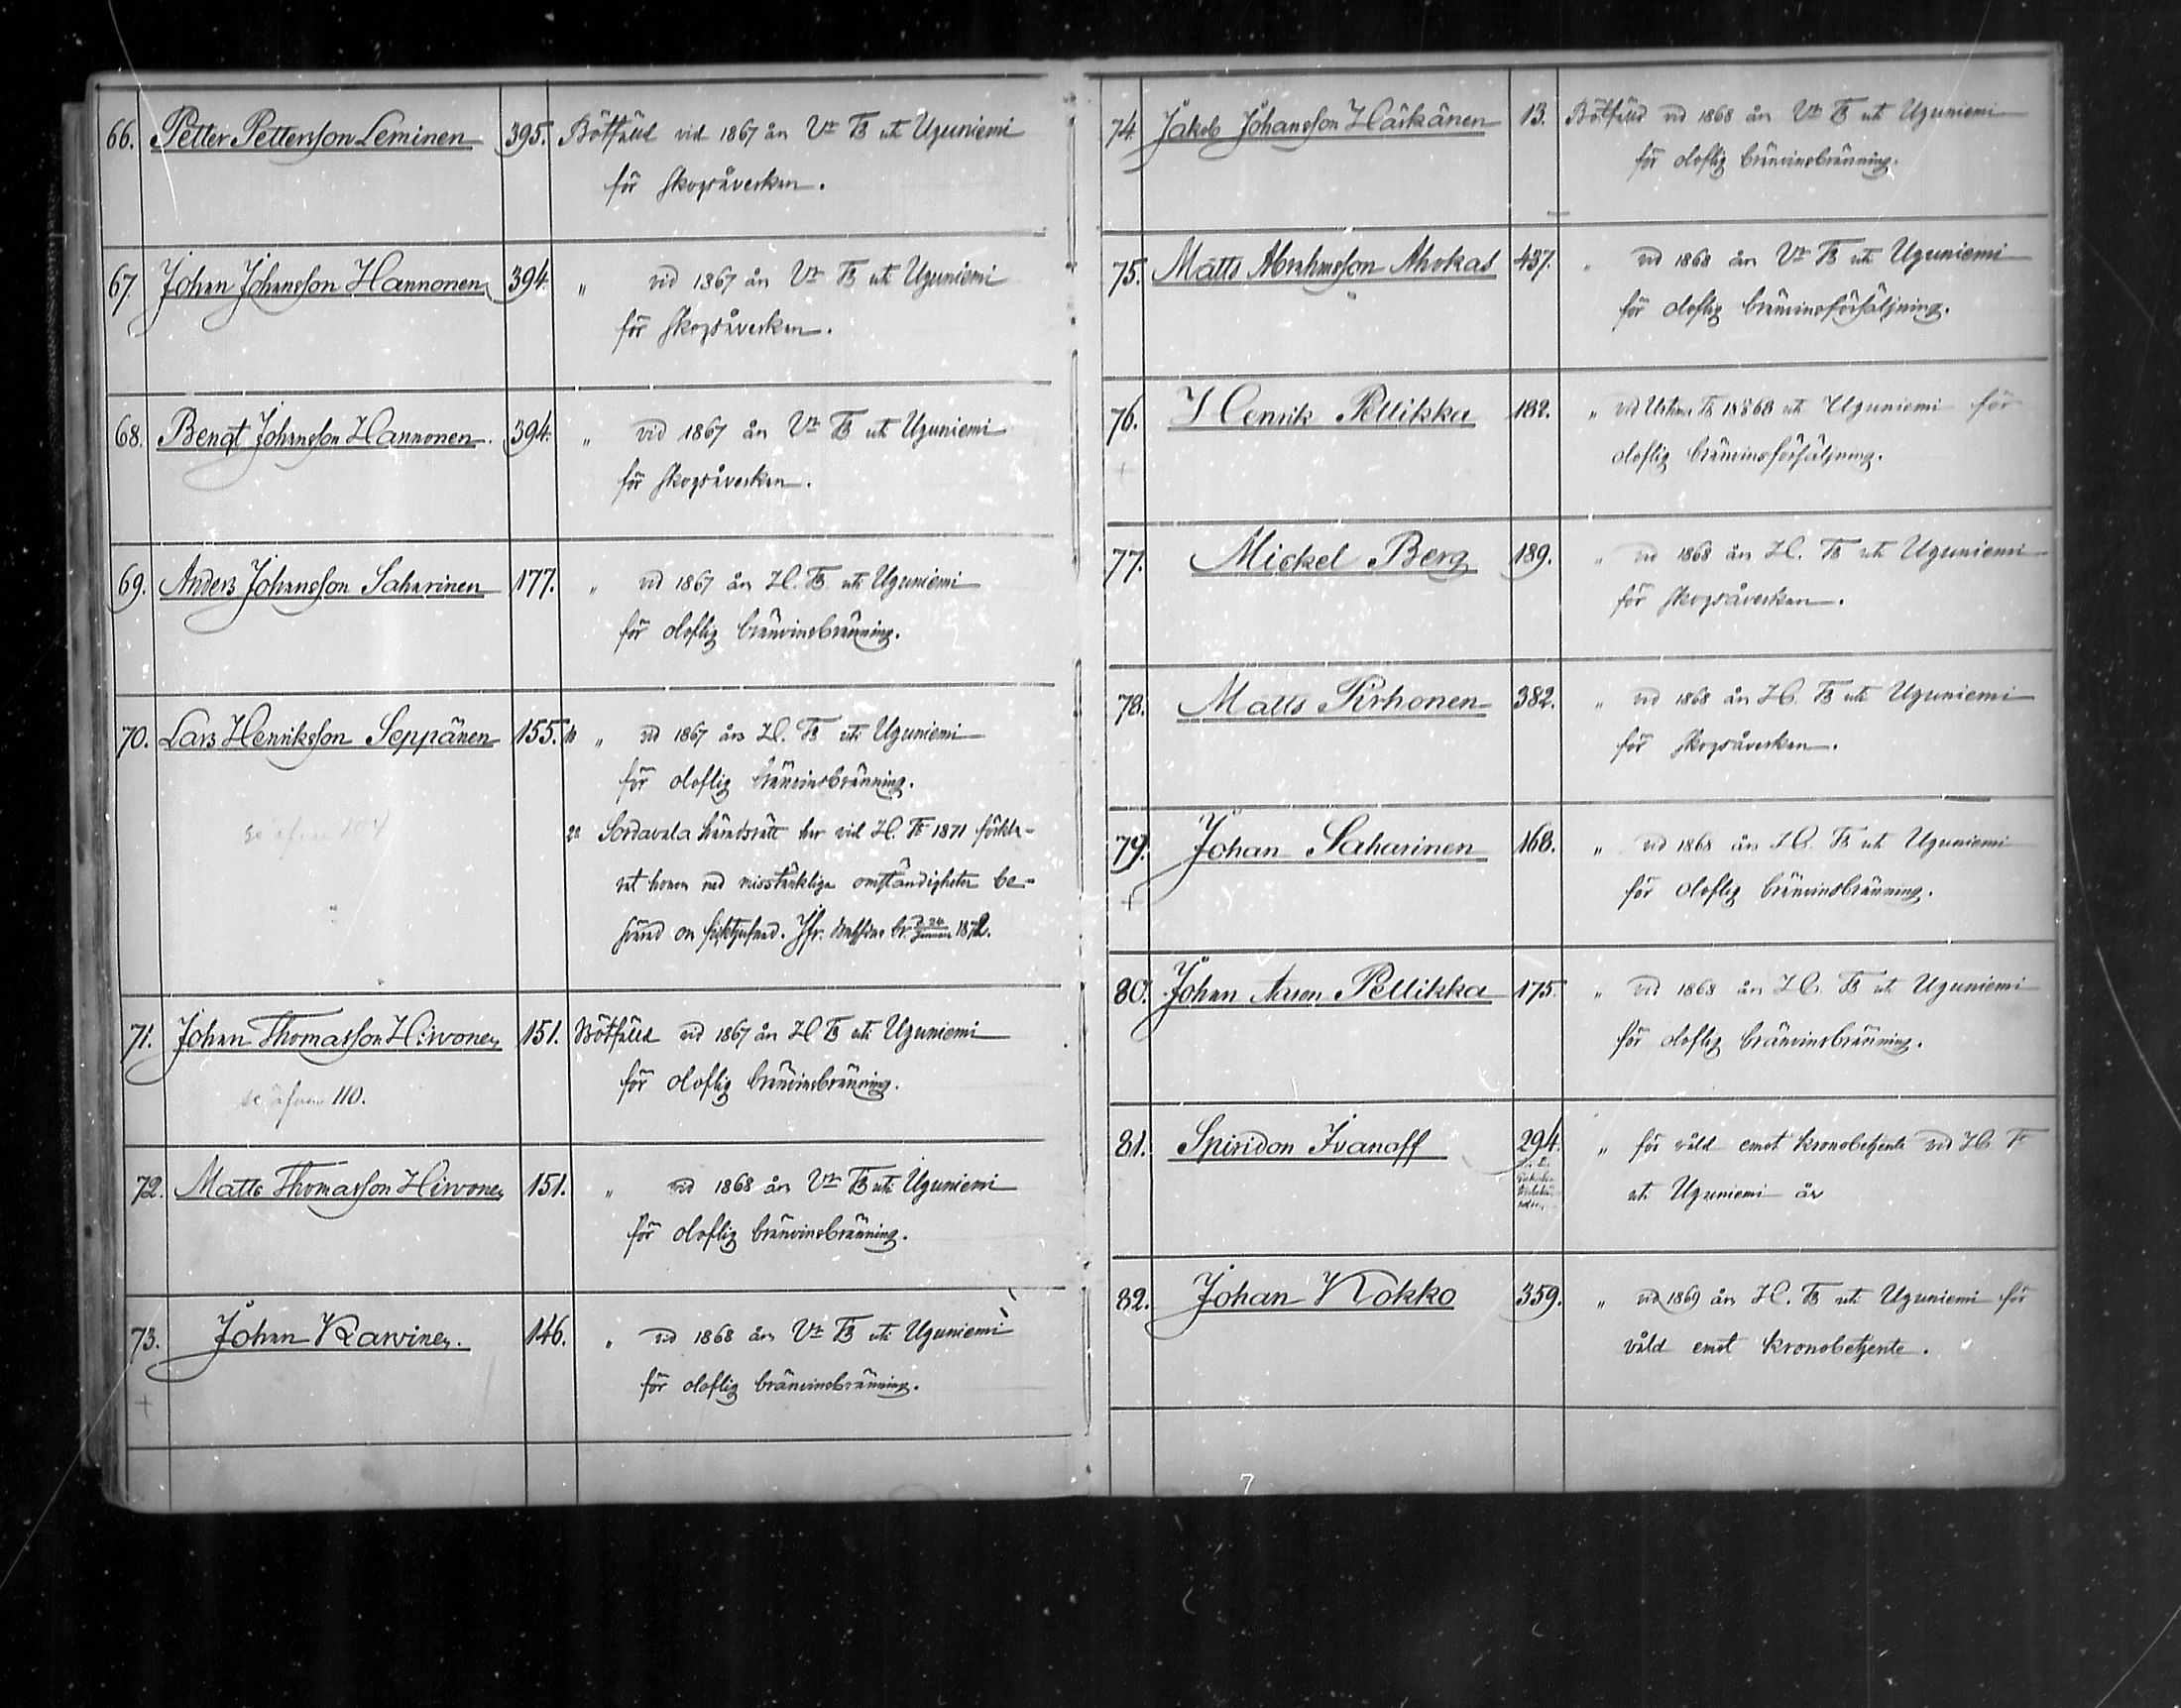 66. Petter Pettersson Leminen 395. Bötfäld vid 1867 års Vt. T. uti Uguniemi
för skogsåverkan.
67. Johan Johansson Hannonen 394. " vid 1867 års Vt. T. uti Uguniemi
för skogsåverkan.
68. Bengt Johansson Hannonen. 394. " vid 1867 års Vt. T. uti Uguniemi
för skogsåverkan.
69. Anders Johansson Saharinen 177. " vid 1867 års H. T. uti Uguniemi
för oloflig bränvinsbränning.
70. Lars Henriksson Seppänen 155. 1o " vid 1867 års H. T. uti Uguniemi
för oloflig bränvinsbränning.
se äfven 104
2o Sordavala häradsrätt har vid H. T. 1871 förkla-
rat honom med misstänkliga omständigheter be-
svärad om Jfr. br. 24 1872.
71. Johan Thomasson Hirvonen 151. Bötfäld vid 1867 års H. T. uti Uguniemi
för oloflig bränvinsbränning.
se äfven 110.
72. Matts Thomasson Hirvonen 151. " vid 1868 års Vt. T. uti Uguniemi
för oloflig bränvinsbränning.
73. Johan Karvinen. 146. " vid 1868 års Vt. T. uti Uguniemi
för oloflig bränvinsbränning.
+
74. Jakob Johansson Härkänen 13. Bötfäld vid 1868 års Vt. T. uti Uguniemi
för oloflig bränvinsbränning.
75. Matts Abrahmsson Ahokas 437. " vid 1868 års Vt. T. uti Uguniemi
för oloflig bränvinsförsäljning.
76. Henrik Pellikka 182. " vid Urtima T. 1868 uti Uguniemi för
oloflig bränvinsförsäljning.
+
77. Mickel Berg 189. " vid 1868 års H. T. uti Uguniemi
för skogsåverkan.
78. Matts Pirhonen 382. " vid 1868 års H. T. uti Uguniemi
för skogsåverkan.
79. Johan Saharinen 168. " vid 1868 års H. T. uti Uguniemi
för oloflig bränvinsbränning.
+
80. Johan Aaron Pellikka 175. " vid 1868 års H. T. uti Uguniemi
för oloflig bränvinsbränning.
81. Spiridon Ivanoff 294. " för våld emot kronobetjente vid H. T.
uti Uguniemi år
82. Johan Kokko 359. " vid 1869 års H. T. uti Uguniemi för
våld emot kronobetjente.
7